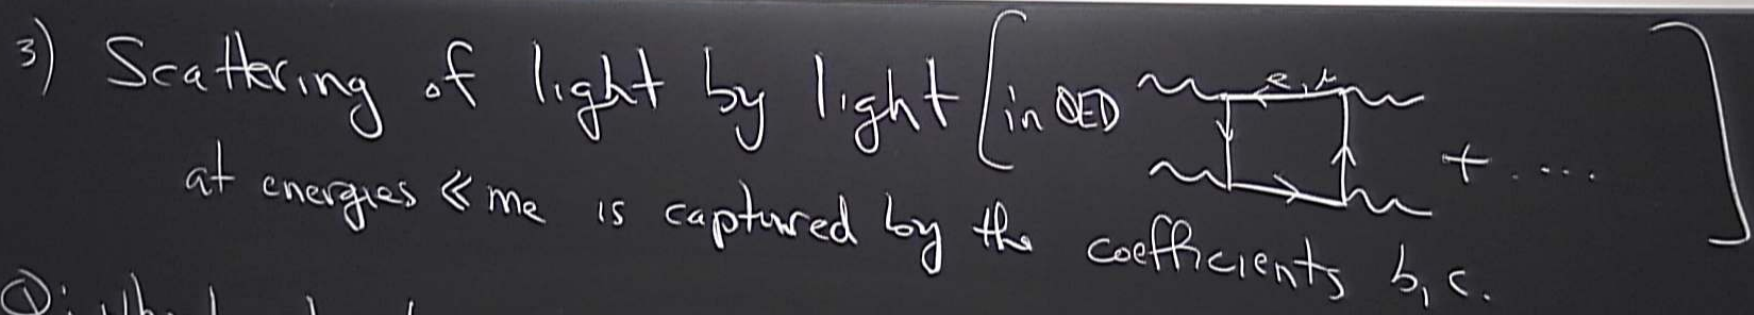 3) Scattering of light by light [in QED e, μ + .... ]
at energies ≪ me is captured by the coefficients b, c.
Q: